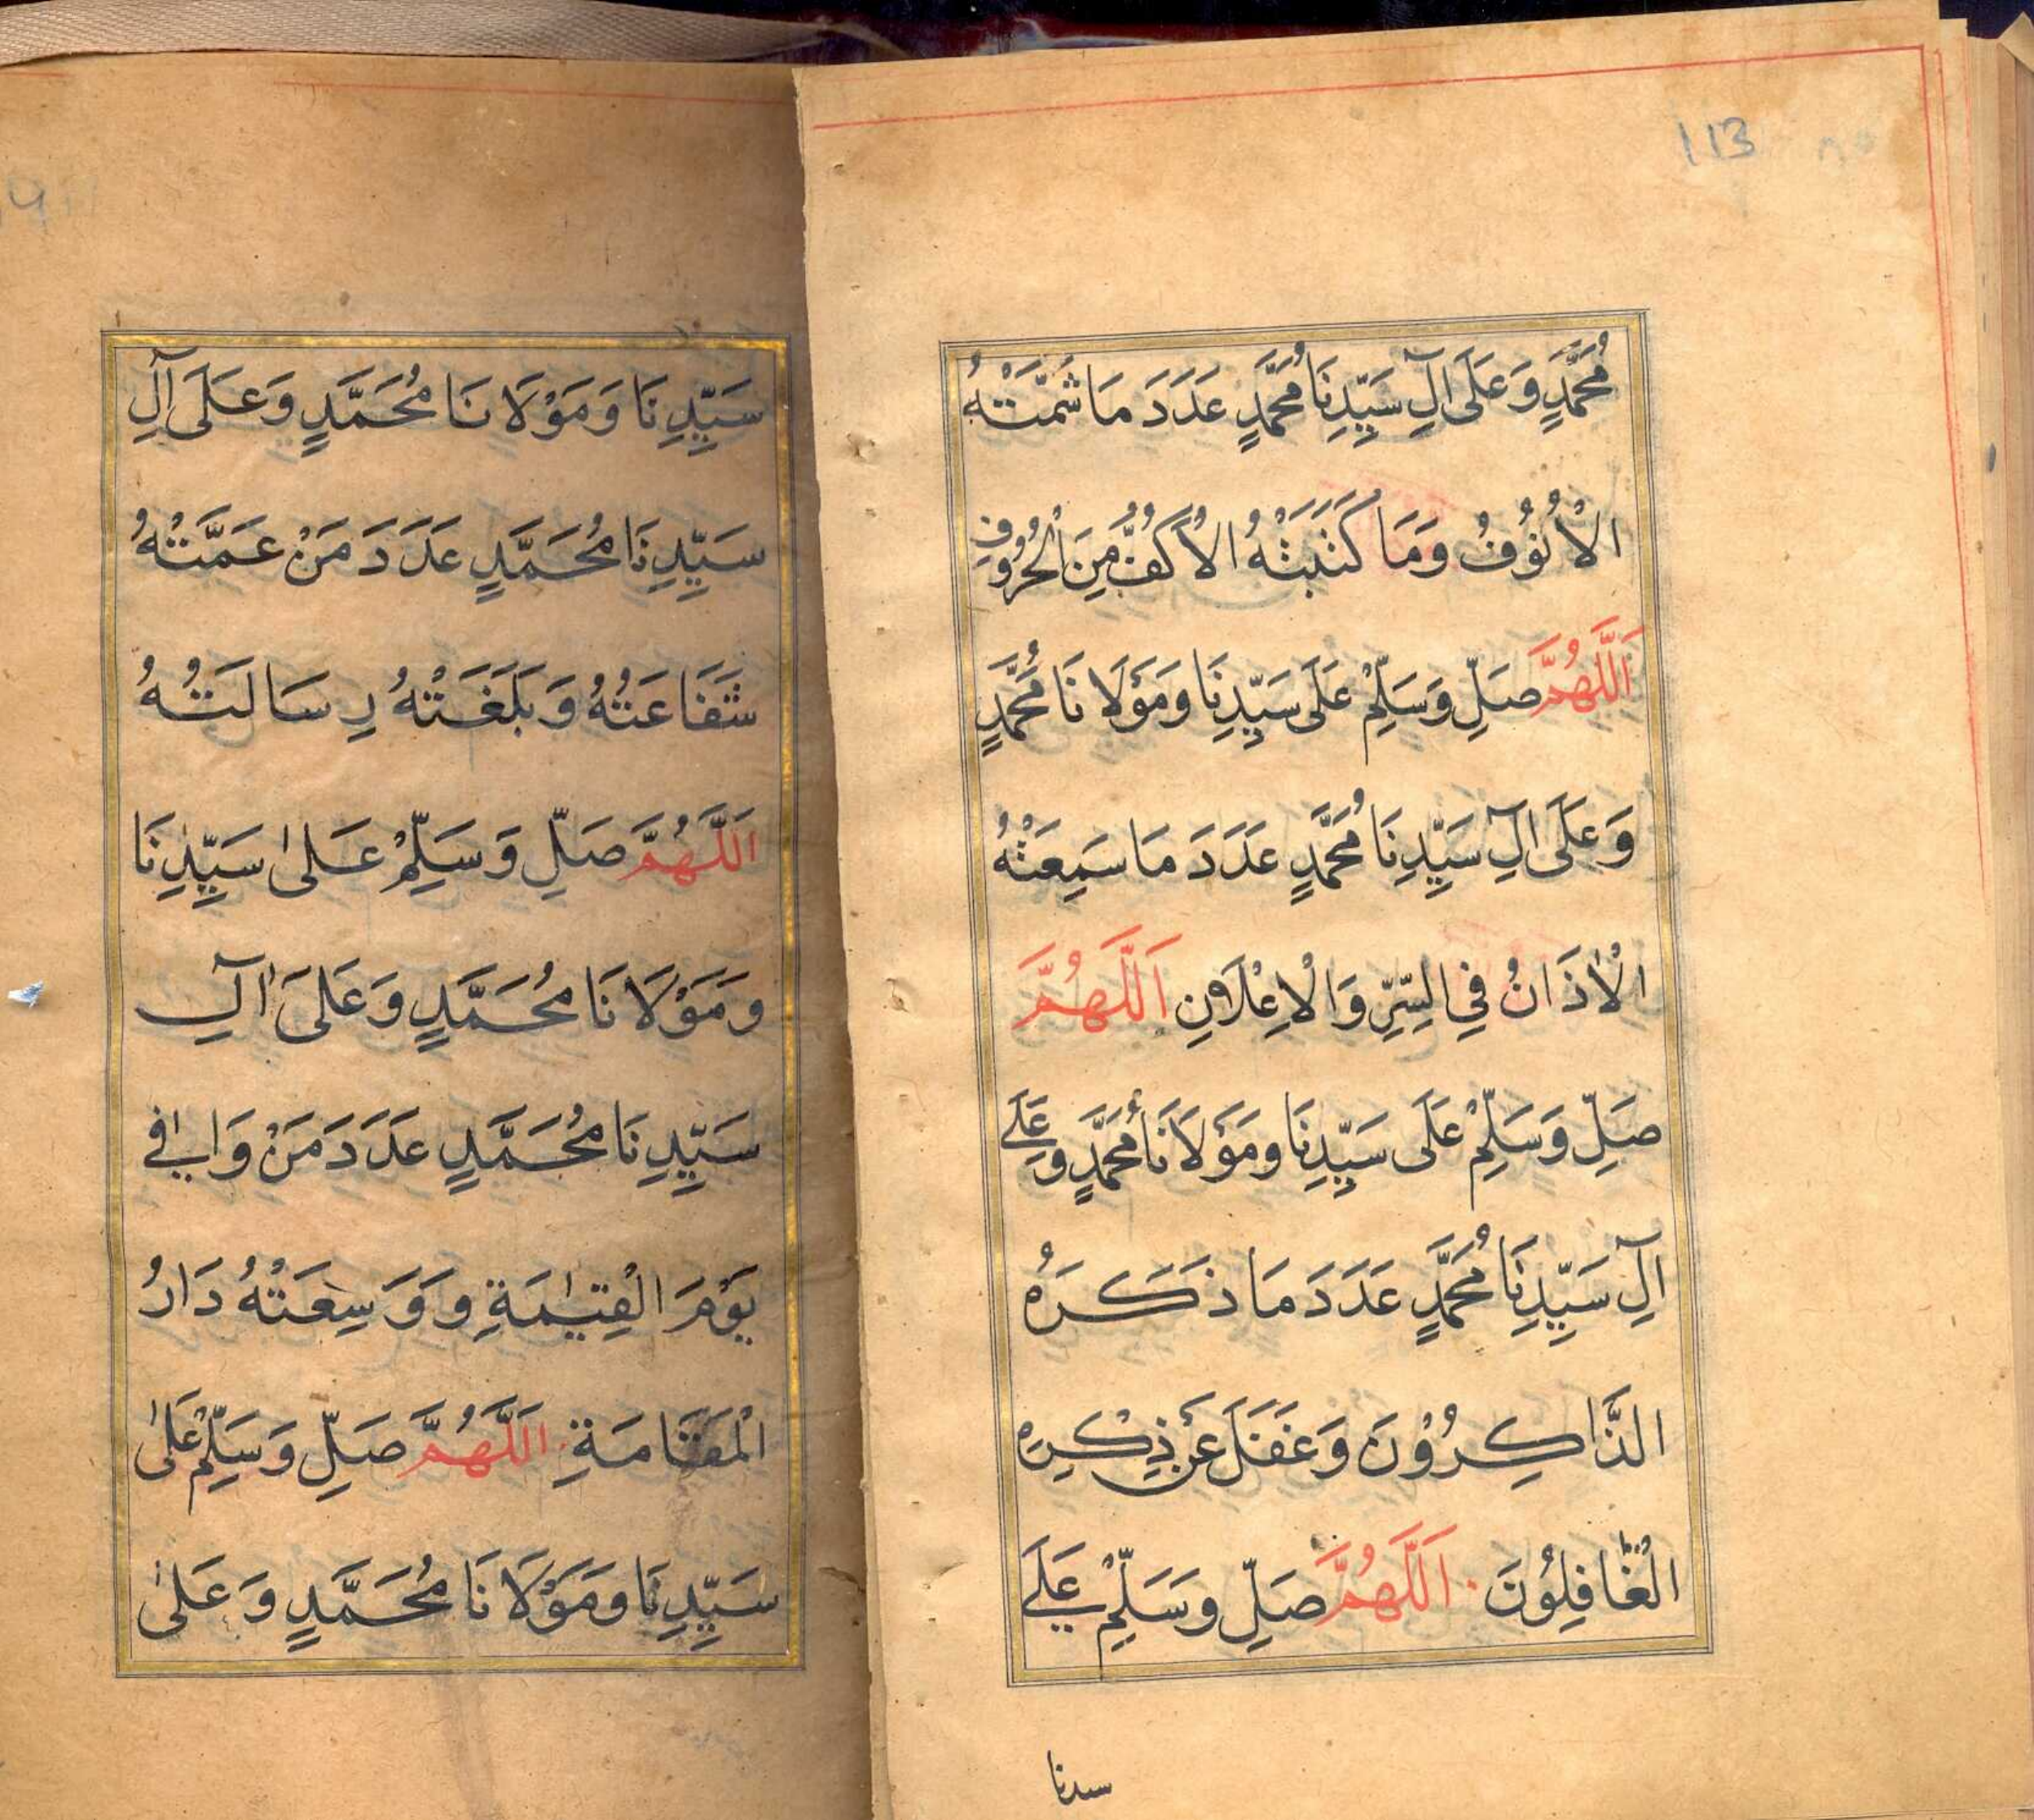 113
مُحَمَّدٍ وَعَلَى آلِ سَيِّدِنَا مُحَمَّدٍ عَدَدَ مَا شَمَّتْهُ
الْأُنُوْفُ وَمَا كَتَبَتْهُ الْأَكُفُّ مِنَ الْحُرُوْفِ
اَللَّهُمَّ صَلِّ وَسَلِّمْ عَلَى سَيِّدِنَا وَمَوْلَانَا مُحَمَّدٍ
وَعَلَى آلِ سَيِّدِنَا مُحَمَّدٍ عَدَدَ مَا سَمِعَتْهُ
الْاٰذَانُ فِي السِّرِّ وَالْاِعْلَانِ اَللَّهُمَّ
صَلِّ وَسَلِّمْ عَلَى سَيِّدِنَا وَمَوْلَانَا مُحَمَّدٍ وَعَلَے
آلِ سَيِّدِنَا مُحَمَّدٍ عَدَدَ مَا ذَكَرَهُ
الذَّاكِرُوْنَ وَغَفَلَ عَنْ ذِكْرِهِ
الْغَافِلُوْنَ . اَللَّهُمَّ صَلِّ وَسَلِّمْ عَلَے
سدنا
سَيِّدِنَا وَمَوْلَانَا مُحَمَّدٍ وَعَلَى آلِ
سَيِّدِنَا مُحَمَّدٍ عَدَدَ مَنْ عَمَّتْهُ
شَفَاعَتُهُ وَبَلَغَتْهُ رِسَالَتُهُ
اَللَّهُمَّ صَلِّ وَسَلِّمْ عَلٰى سَيِّدِنَا
وَمَوْلَانَا مُحَمَّدٍ وَعَلَى اٰلِ
سَيِّدِنَا مُحَمَّدٍ عَدَدَ مَنْ وَافٰى
يَوْمَ الْقِيٰمَةِ وَوَسِعَتْهُ دَارُ
الْمَقَامَةِ . اَللَّهُمَّ صَلِّ وَسَلِّمْ عَلٰى
سَيِّدِنَا وَمَوْلَانَا مُحَمَّدٍ وَعَلٰى